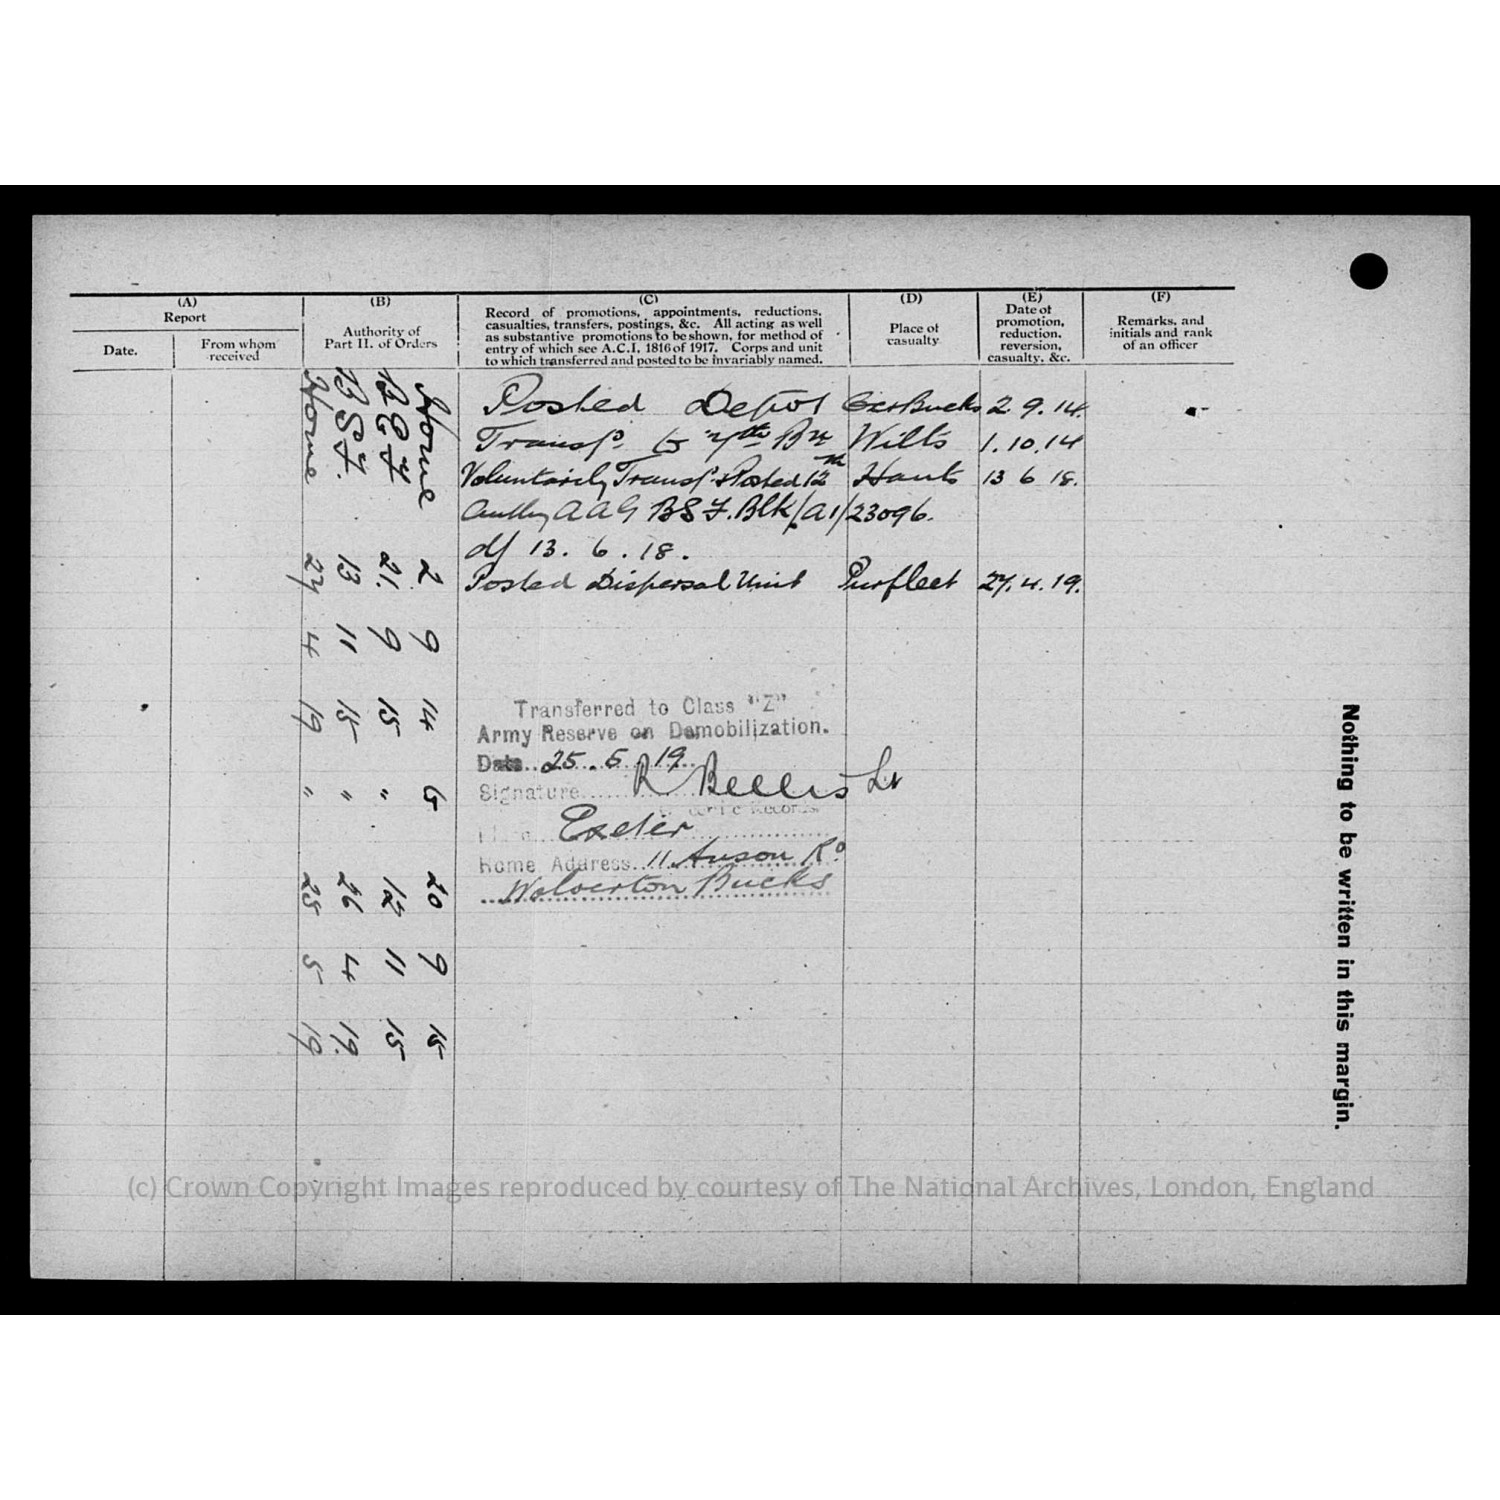 (A)
Report
Date.
From whom
received
(B)
Authority of
Part II. of Orders
(C)
Record of promotions, appointments, reductions,
casualties, transfers, postings, &c. All acting as well
as substantive promotions to be shown, for method of
entry of which see A.C.I. 1816 of 1917. Corps and unit
to which transferred and posted to be invariably named.
(D)
Place of
casualty
(E)
Date of
promotion,
reduction,
reversion,
casualty, &c.
(F)
Remarks, and
initials and rank
of an officer
Posted Depot 2. 9. 14.
Transf. to 7th Bn Wilts 1. 10. 14
Voluntarily Transf. & Posted 12th Hants 13 6 18.
A A G B S F. Blk/A1/23096.
d/ 13. 6. 18.
Posted Dispersal Unit Purfleet 27. 4. 19.
Home 2 9 14 to 20 9 15
B E F 21. 9 15 " 12 11 15
B S F. 13 11 15 " 26 4 19.
Home 27 4 19 " 25 5 19
Transferred to Class "Z"
Army Reserve on Demobilization.
Date 25. 5. 19
Signature R Lt
Records
Exeter
Home Address 11 Anson Rd
Wolverton Bucks
Nothing to be written in this margin.
(c) Crown Copyright Images reproduced by courtesy of The National Archives, London, England